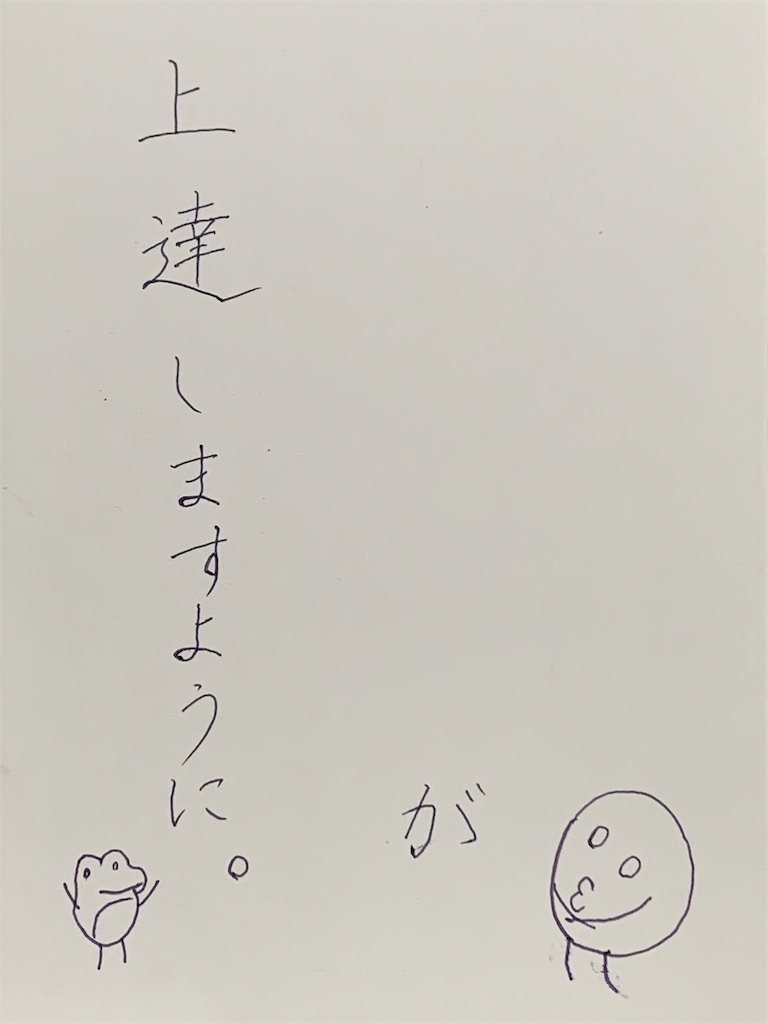 が
上達しますように。